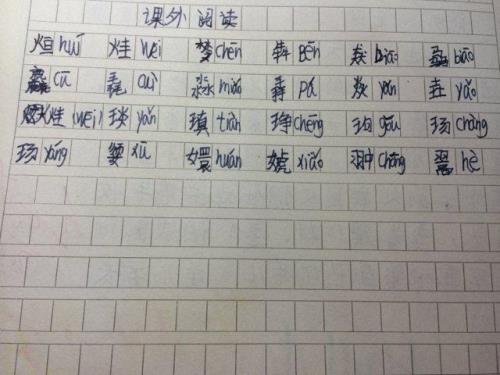 课外阅读
烜huī 烓wēi chēn 犇Bēn 猋biāo 骉biāo
麤cū 毳cuì 淼miǎo 掱pá 焱yàn 垚yǎo
烓(wēi) 琰yǎn 瑱tiàn 琤chēng 玽gǒu 玚chàng
玚yáng 媭xū 嬛huán xiǎo 翀chōng 翯hè